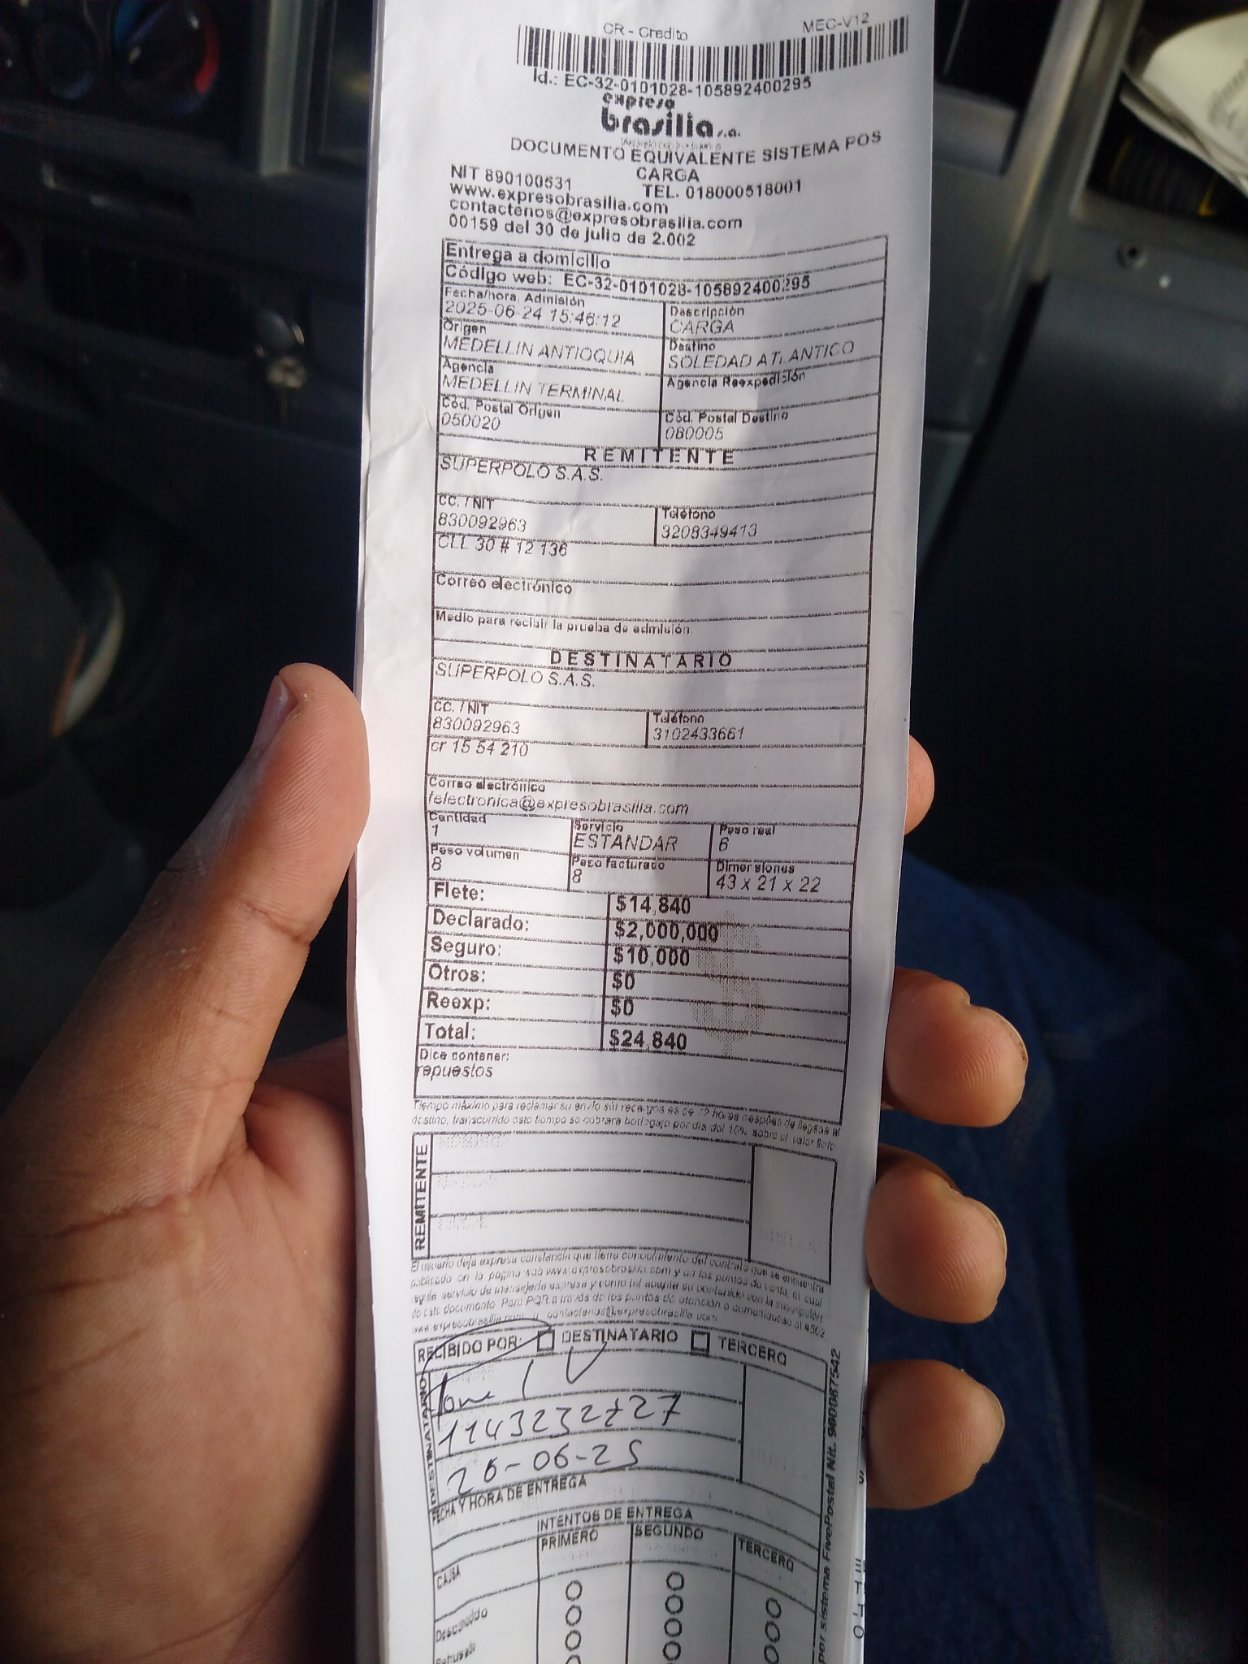 CR - Credito
MEC-V12
Id.: EC-32-0101028-105892400295
expreso
brasilia s.a.
DOCUMENTO EQUIVALENTE SISTEMA POS
CARGA
NIT 890100531
TEL. 018000518001
www.expresobrasilia.com
contactenos@expresobrasilia.com
00159 del 30 de julio de 2.002
Entrega a domicilio
Código web: EC-32-0101028-105892400295
Fecha/hora. Admisión
2025-06-24 15:46:12
Descripción
CARGA
Origen
MEDELLIN ANTIOQUIA
Destino
SOLEDAD ATLANTICO
Agencia
MEDELLIN TERMINAL
Agencia Reexpedición
Cód. Postal Origen
050020
Cód. Postal Destino
080005
REMITENTE
SUPERPOLO S.A.S.
CC. / NIT
830092963
Teléfono
3208349413
CLL 30 # 12 136
Correo electrónico
Medio para recibir la prueba de admisión
DESTINATARIO
SUPERPOLO S.A.S.
CC. / NIT
830092963
Teléfono
3102433661
cr 15 54 210
Correo electrónico
felectronica@expresobrasilia.com
Cantidad
1
Servicio
ESTANDAR
Peso real
6
Peso volumen
8
Peso facturado
8
Dimensiones
43 x 21 x 22
Flete: $14,840
Declarado: $2,000,000
Seguro: $10,000
Otros: $0
Reexp: $0
Total: $24,840
Dice contener:
repuestos
Tiempo máximo para reclamar su envío sin recargos es de horas después de llegada al
destino, transcurrido este tiempo se cobrara bodegaje por día del 10% sobre el valor flete
REMITENTE
El usuario deja expresa constancia que tiene conocimiento del contrato que se encuentra
publicado en la página web www.expresobrasilia.com y en los puntos de venta, el cual
servicio de mensajería expresa y como tal acepta su contenido con la suscripción
de este documento. Para PQR a través de los puntos de atención o comuníquese al
www.expresobrasilia.com contactenos@expresobrasilia.com
RECIBIDO POR: DESTINATARIO TERCERO
DESTINATARIO
1143232727
26-06-25
FECHA Y HORA DE ENTREGA
INTENTOS DE ENTREGA
CAUSA
PRIMERO
SEGUNDO
TERCERO
Desconocido
Rehusado
por sistema FivePostal Nit. 900087542